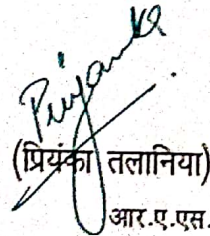 Priyanka
(प्रियंका तलानिया)
आर.ए.एस.